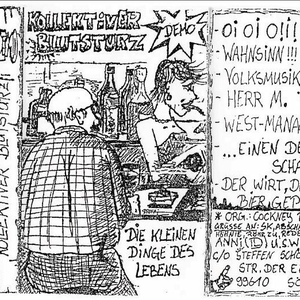 KOLLEKTIVER BLUTSTURZ
KOLLEKTIVER
BLUTSTURZ
DEMO
DIE KLEINEN
DINGE DES
LEBENS
OI OI O!!!
- WAHNSINN !!!
- VOLKSMUSIK
HERR M.
- WEST-MANA
- ...EINEN DE
SCHA
DER WIRT, D
BIER GEP
* ORG.: COCKNEY
GRÜSSE AN: SK, ABSCH
ANNI (TD) U.S.W
C/O STEFFEN SCHÖ
STR. DER E.
99610 SÖ